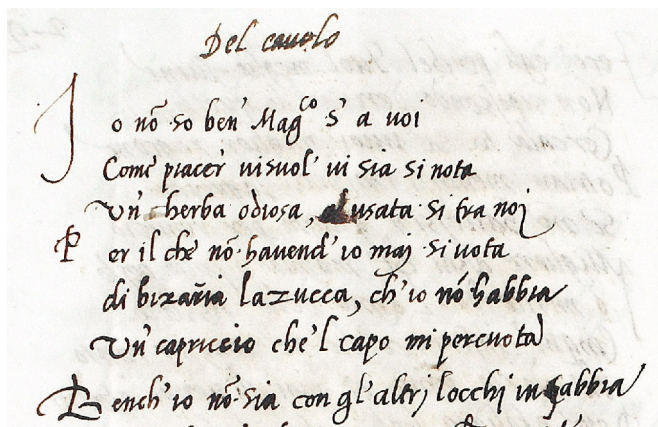 Del cavolo
Io nõ so ben' Mag.co S.r a voi
Come piacer' vi suol' vi sia si nota
Un' herba odiosa, usata si fra noi
Per il che nõ havend' io maj si vota
di bizaria la zucca, ch'io nõ habbia
Un capriccio che 'l capo mi percuota
Bench' io nõ sia con gl' altrj locchi in gabbia